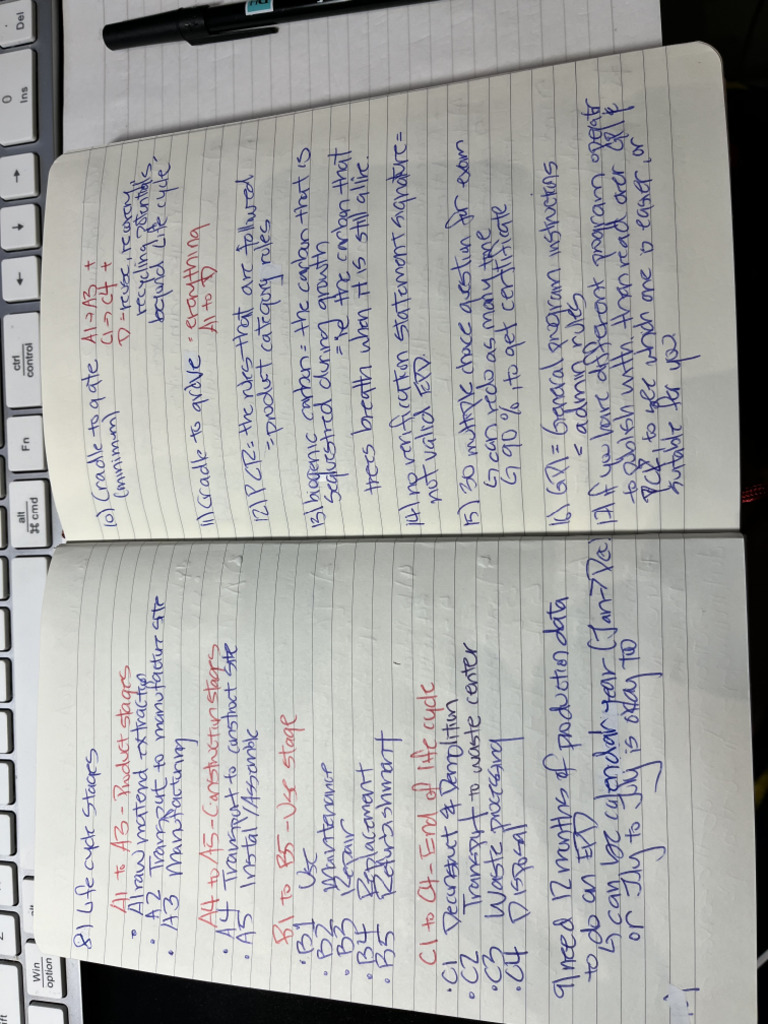 8) Life cycle stages
A1 to A3 - Product stages
• A1 raw material extraction
• A2 Transport to manufacture site
• A3 Manufacturing
A4 to A5 - Construction stages
• A4 Transport to construct site
• A5 Install/Assemble
B1 to B5 - Use stage
• B1 Use
• B2 Maintenance
• B3 Repair
• B4 Replacement
• B5 Refurbishment
C1 to C4 - End of life cycle
• C1 Deconstruct & Demolition
• C2 Transport to waste center
• C3 Waste processing
• C4 Disposal
9) need 12 months of production data
to do an EPD
↳ can be calendar year (Jan → Dec)
or July to July is okay too
10) Cradle to gate A1 → A3 +
(minimum) C1 → C4 +
D - reuse, recovery
recycling potentials
beyond life cycle.
11) Cradle to grave - everything
A1 to D
12) PCR = the rules that are followed
= product category rules
13) biogenic carbon = the carbon that is
sequestred during growth
= ie the carbon that
trees breath when it is still alive.
14) no verification statement signature =
not valid EPD.
15) 30 multiple choice question for exam
↳ can redo as many time
↳ 90% to get certificate
16) GPI = General program instructions
= admin rules
17) if you have different program operatr
to publish with, then read over GPI &
PCR to see which one is easier, or
suitable for you
Del
0
Ins
→
↓
←
ctrl
control
Fn
alt
⌘ cmd
alt
Win
option